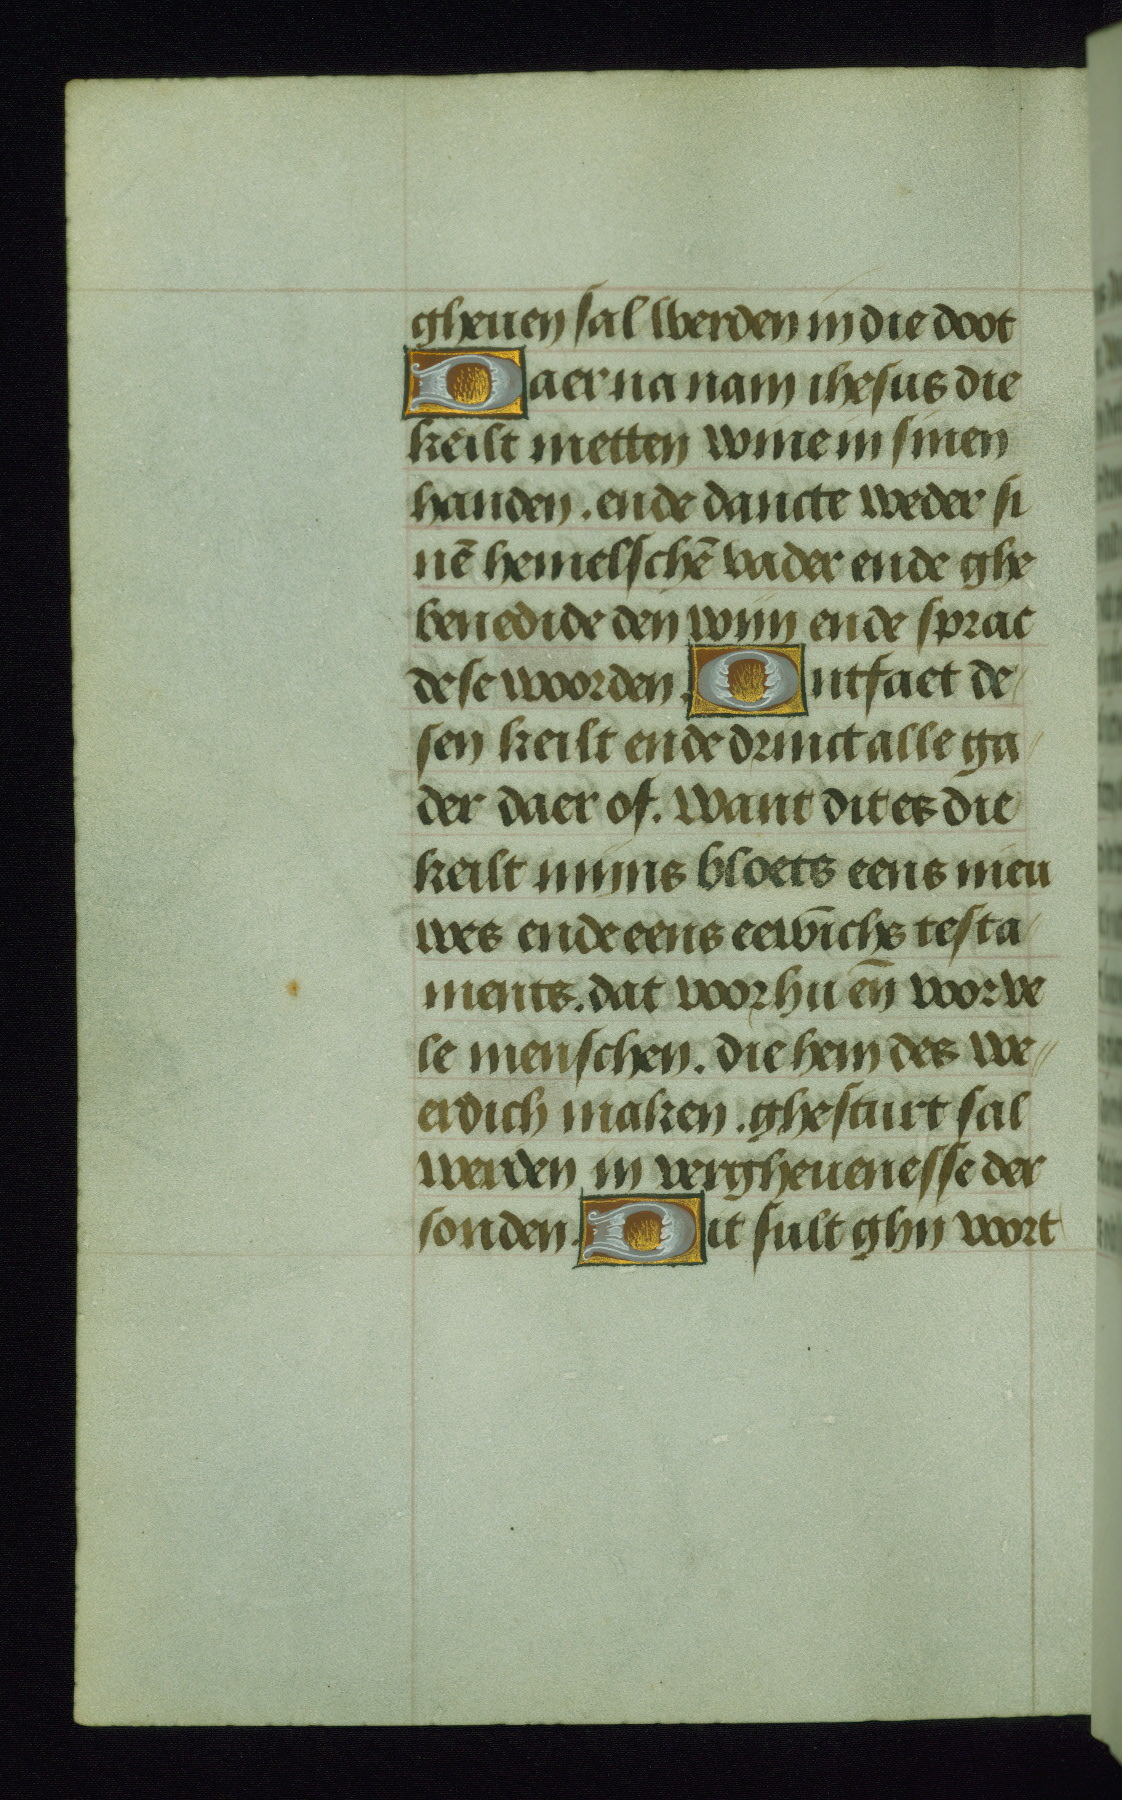 gheuen sal werden in die doot
Daer na nam ihesus die
keilt metten wine in sinen
handen. ende dancte weder si
nē hemelschē vader ende ghe
benedide den wijn ende sprac
dese woorden. Ontfaet de
sen keilt ende drinct alle ga
der daer of. Want dit es die
keilt mijns bloets eens nieu
wes ende eens eewichs testa
ments. dat voor hu eñ voor ve
le menschen. die hem des we
erdich maken. ghesturt sal
werden in vergheuenesse der
sonden. Dit sult ghij voort